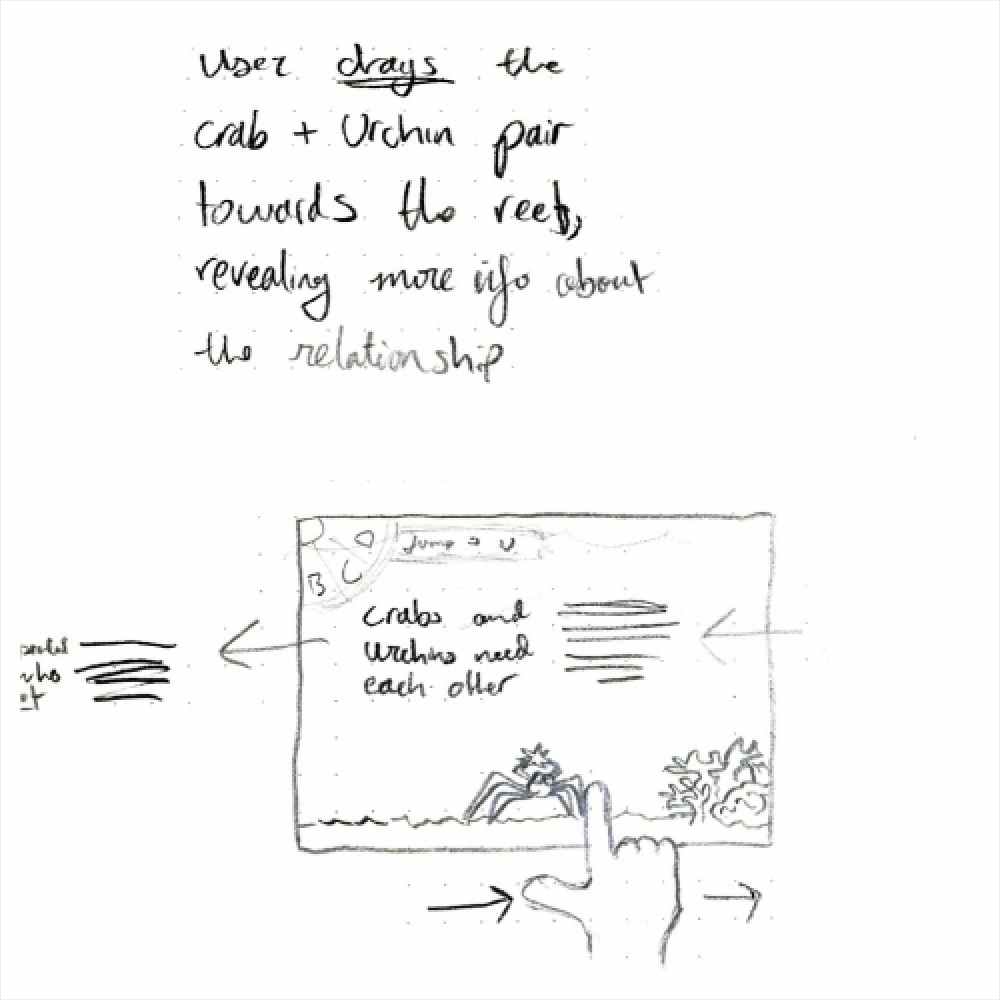 User drags the
crab + Urchin pair
towards the reef,
revealing more info about
the relationship
B C D
Jump → U
Crabs and
Urchins need
each other
who